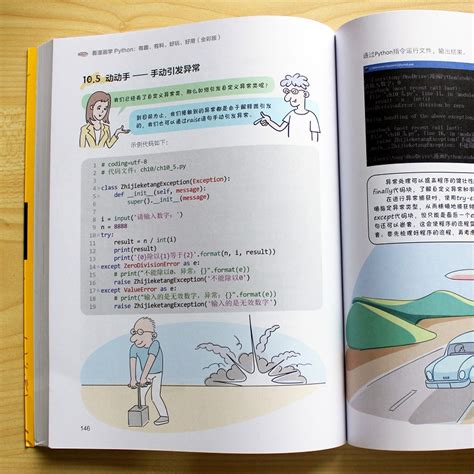 看漫画学 Python：有趣、有料、好玩、好用（全彩版）
10.5 动动手——手动引发异常
我们已经有了自定义异常类，那么如何引发自定义异常类呢？
到目前为止，我们接触到的异常都是由于解释器引发的，我们也可以通过raise语句手动引发异常。
示例代码如下：
1 # coding=utf-8
2 # 代码文件：ch10/ch10_5.py
3
4 class ZhijieketangException(Exception):
5 def __init__(self, message):
6 super().__init__(message)
7
8 i = input('请输入数字：')
9 n = 8888
10 try:
11 result = n / int(i)
12 print(result)
13 print('{0}除以{1}等于{2}'.format(n, i, result))
14 except ZeroDivisionError as e:
15 # print("不能除以0，异常：{}".format(e))
16 raise ZhijieketangException('不能除以0')
17 except ValueError as e:
18 # print("输入的是无效数字，异常：{}".format(e))
19 raise ZhijieketangException('输入的是无效数字')
146
通过Python指令运行文件，输出结果。
异常处理可以提高程序的健壮性
finally代码块，了解自定义异常和手
在进行异常捕获时，使用try-e
捕指定异常类型，从而精确地捕获
except代码块，但只能是最后一个e
句还可以嵌套，这会使程序的流程变
套，要先梳理好程序的流程，再考虑